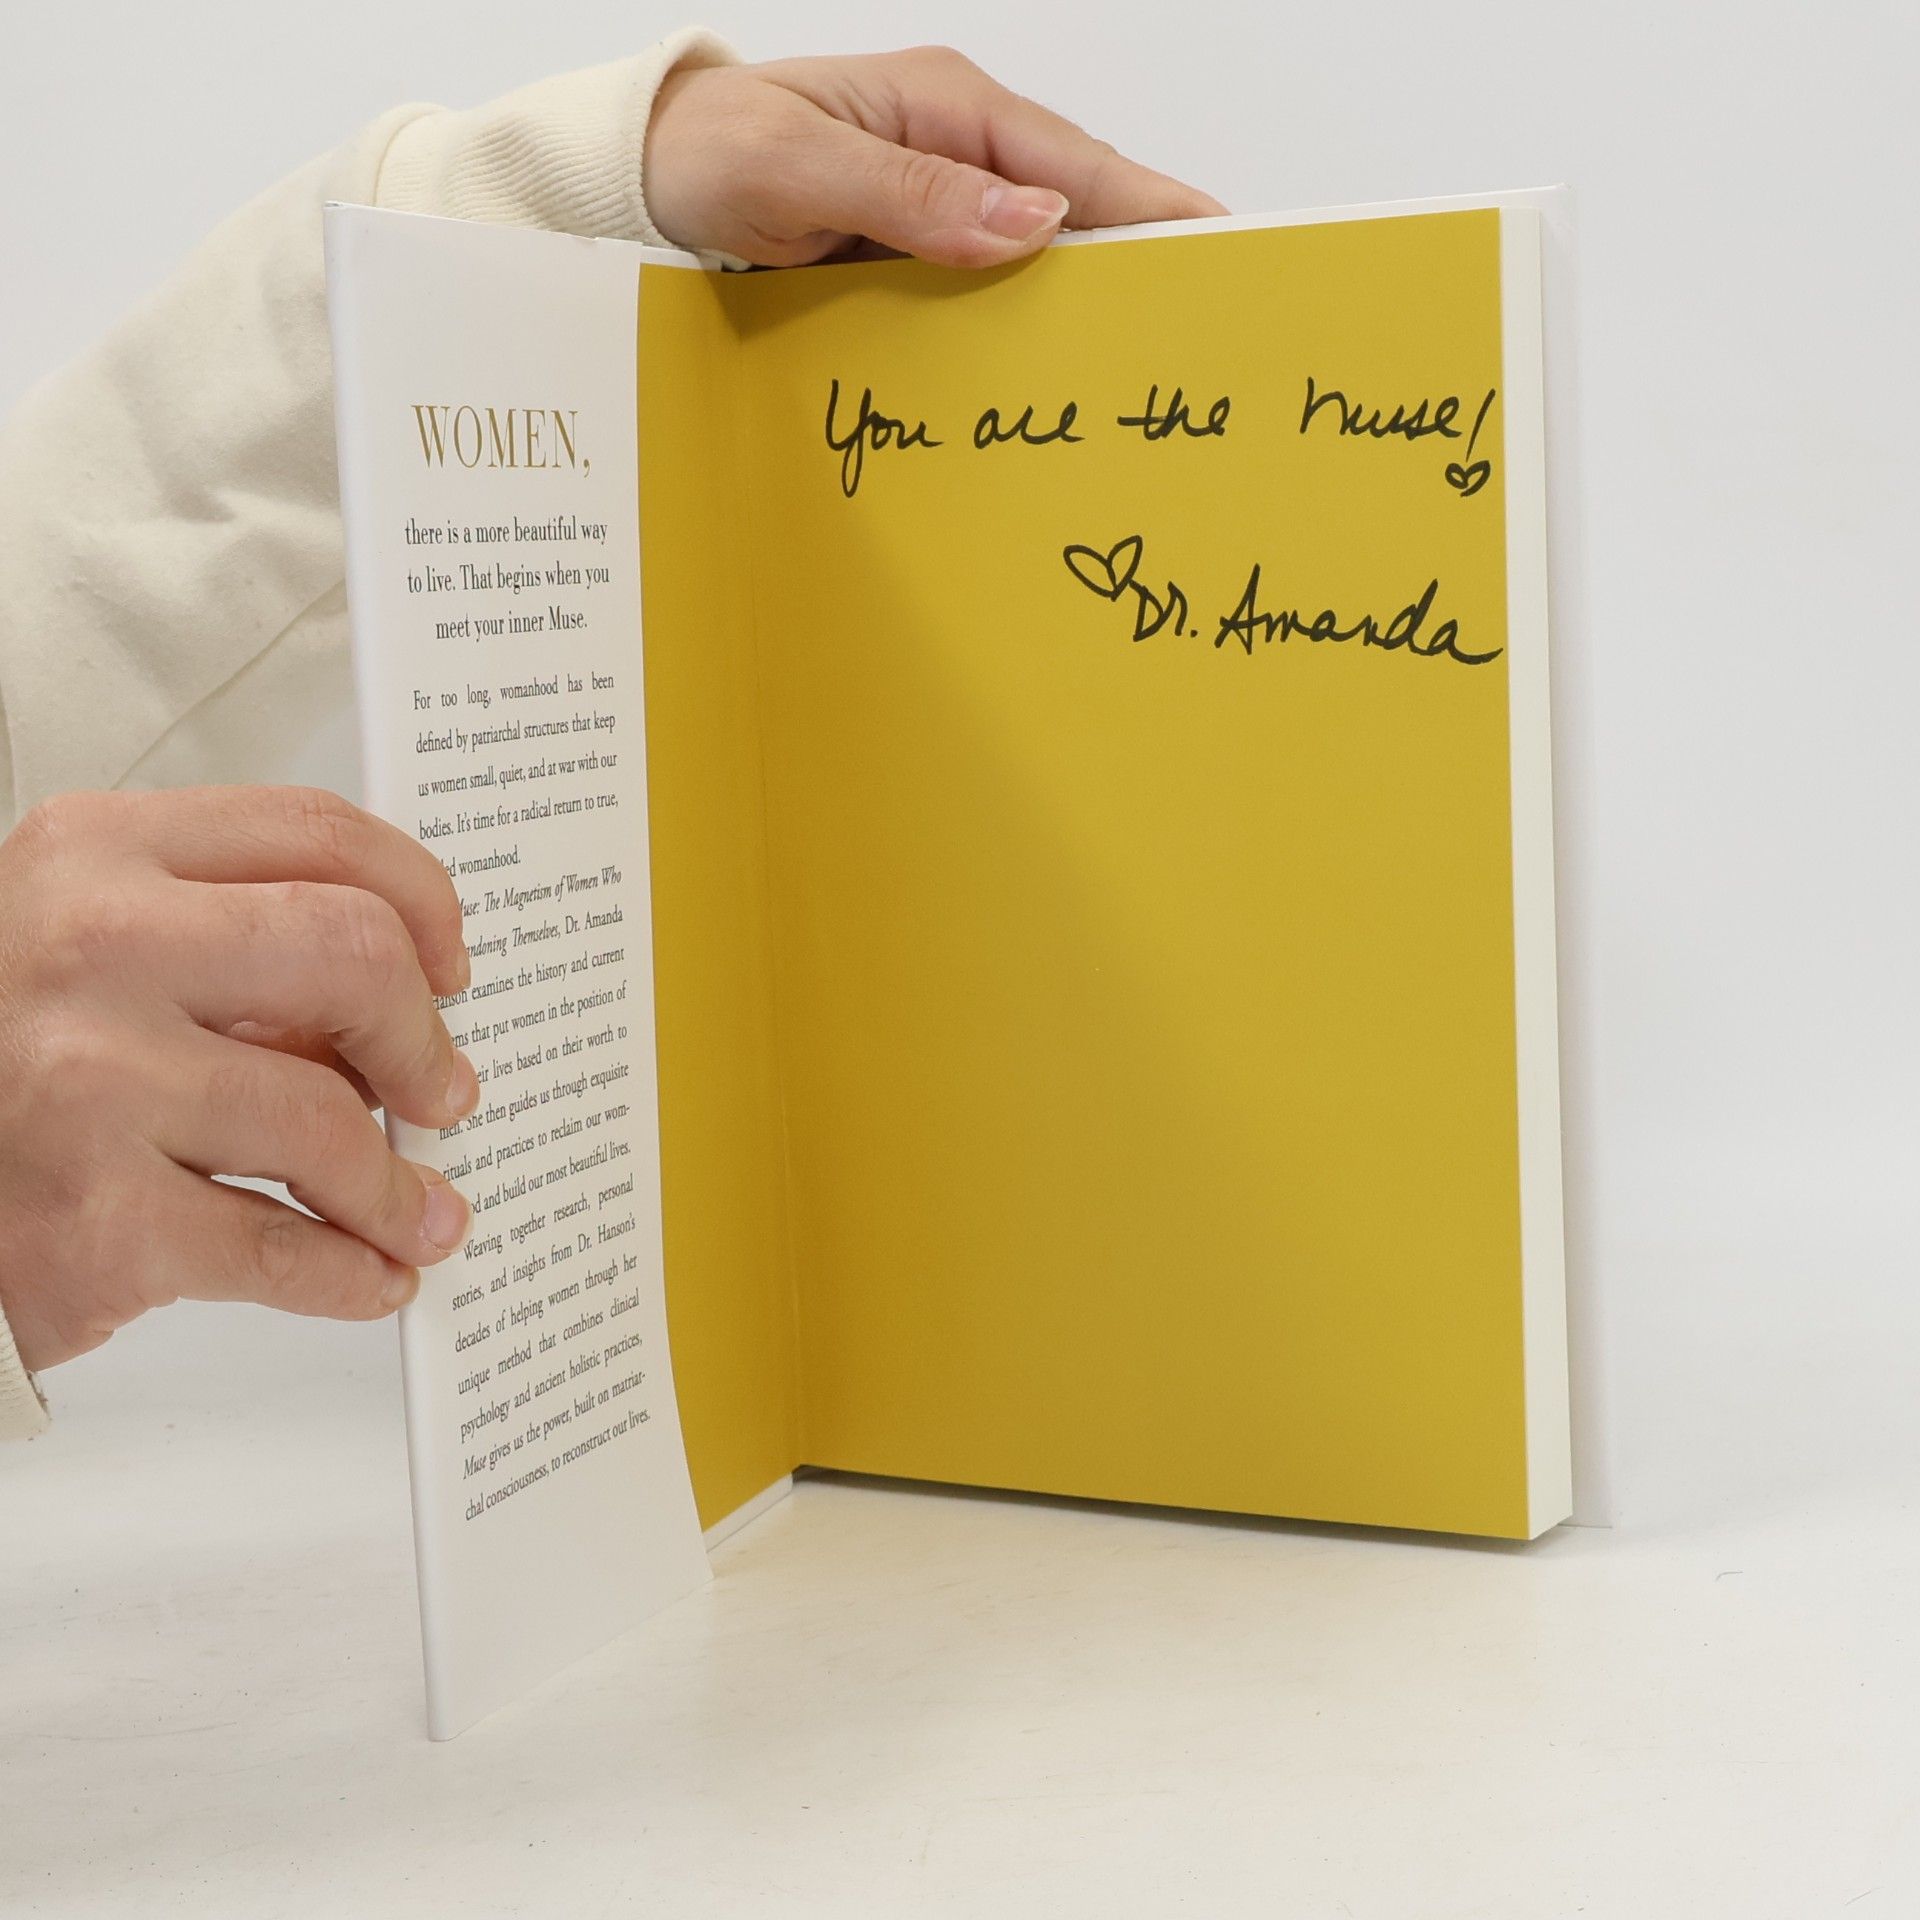 WOMEN,
there is a more beautiful way
to live. That begins when you
meet your inner Muse.
For too long, womanhood has been
defined by patriarchal structures that keep
us women small, quiet, and at war with our
bodies. It's time for a radical return to true,
womanhood.
The Magnetism of Women Who
Themselves, Dr. Amanda
Hanson examines the history and current
that put women in the position of
lives based on their worth to
men. She then guides us through exquisite
rituals and practices to reclaim our wom-
and build our most beautiful lives.
Weaving together research, personal
stories, and insights from Dr. Hanson's
decades of helping women through her
unique method that combines clinical
psychology and ancient holistic practices,
Muse gives us the power, built on matriar-
chal consciousness, to reconstruct our lives.
You are the muse!
Dr. Amanda